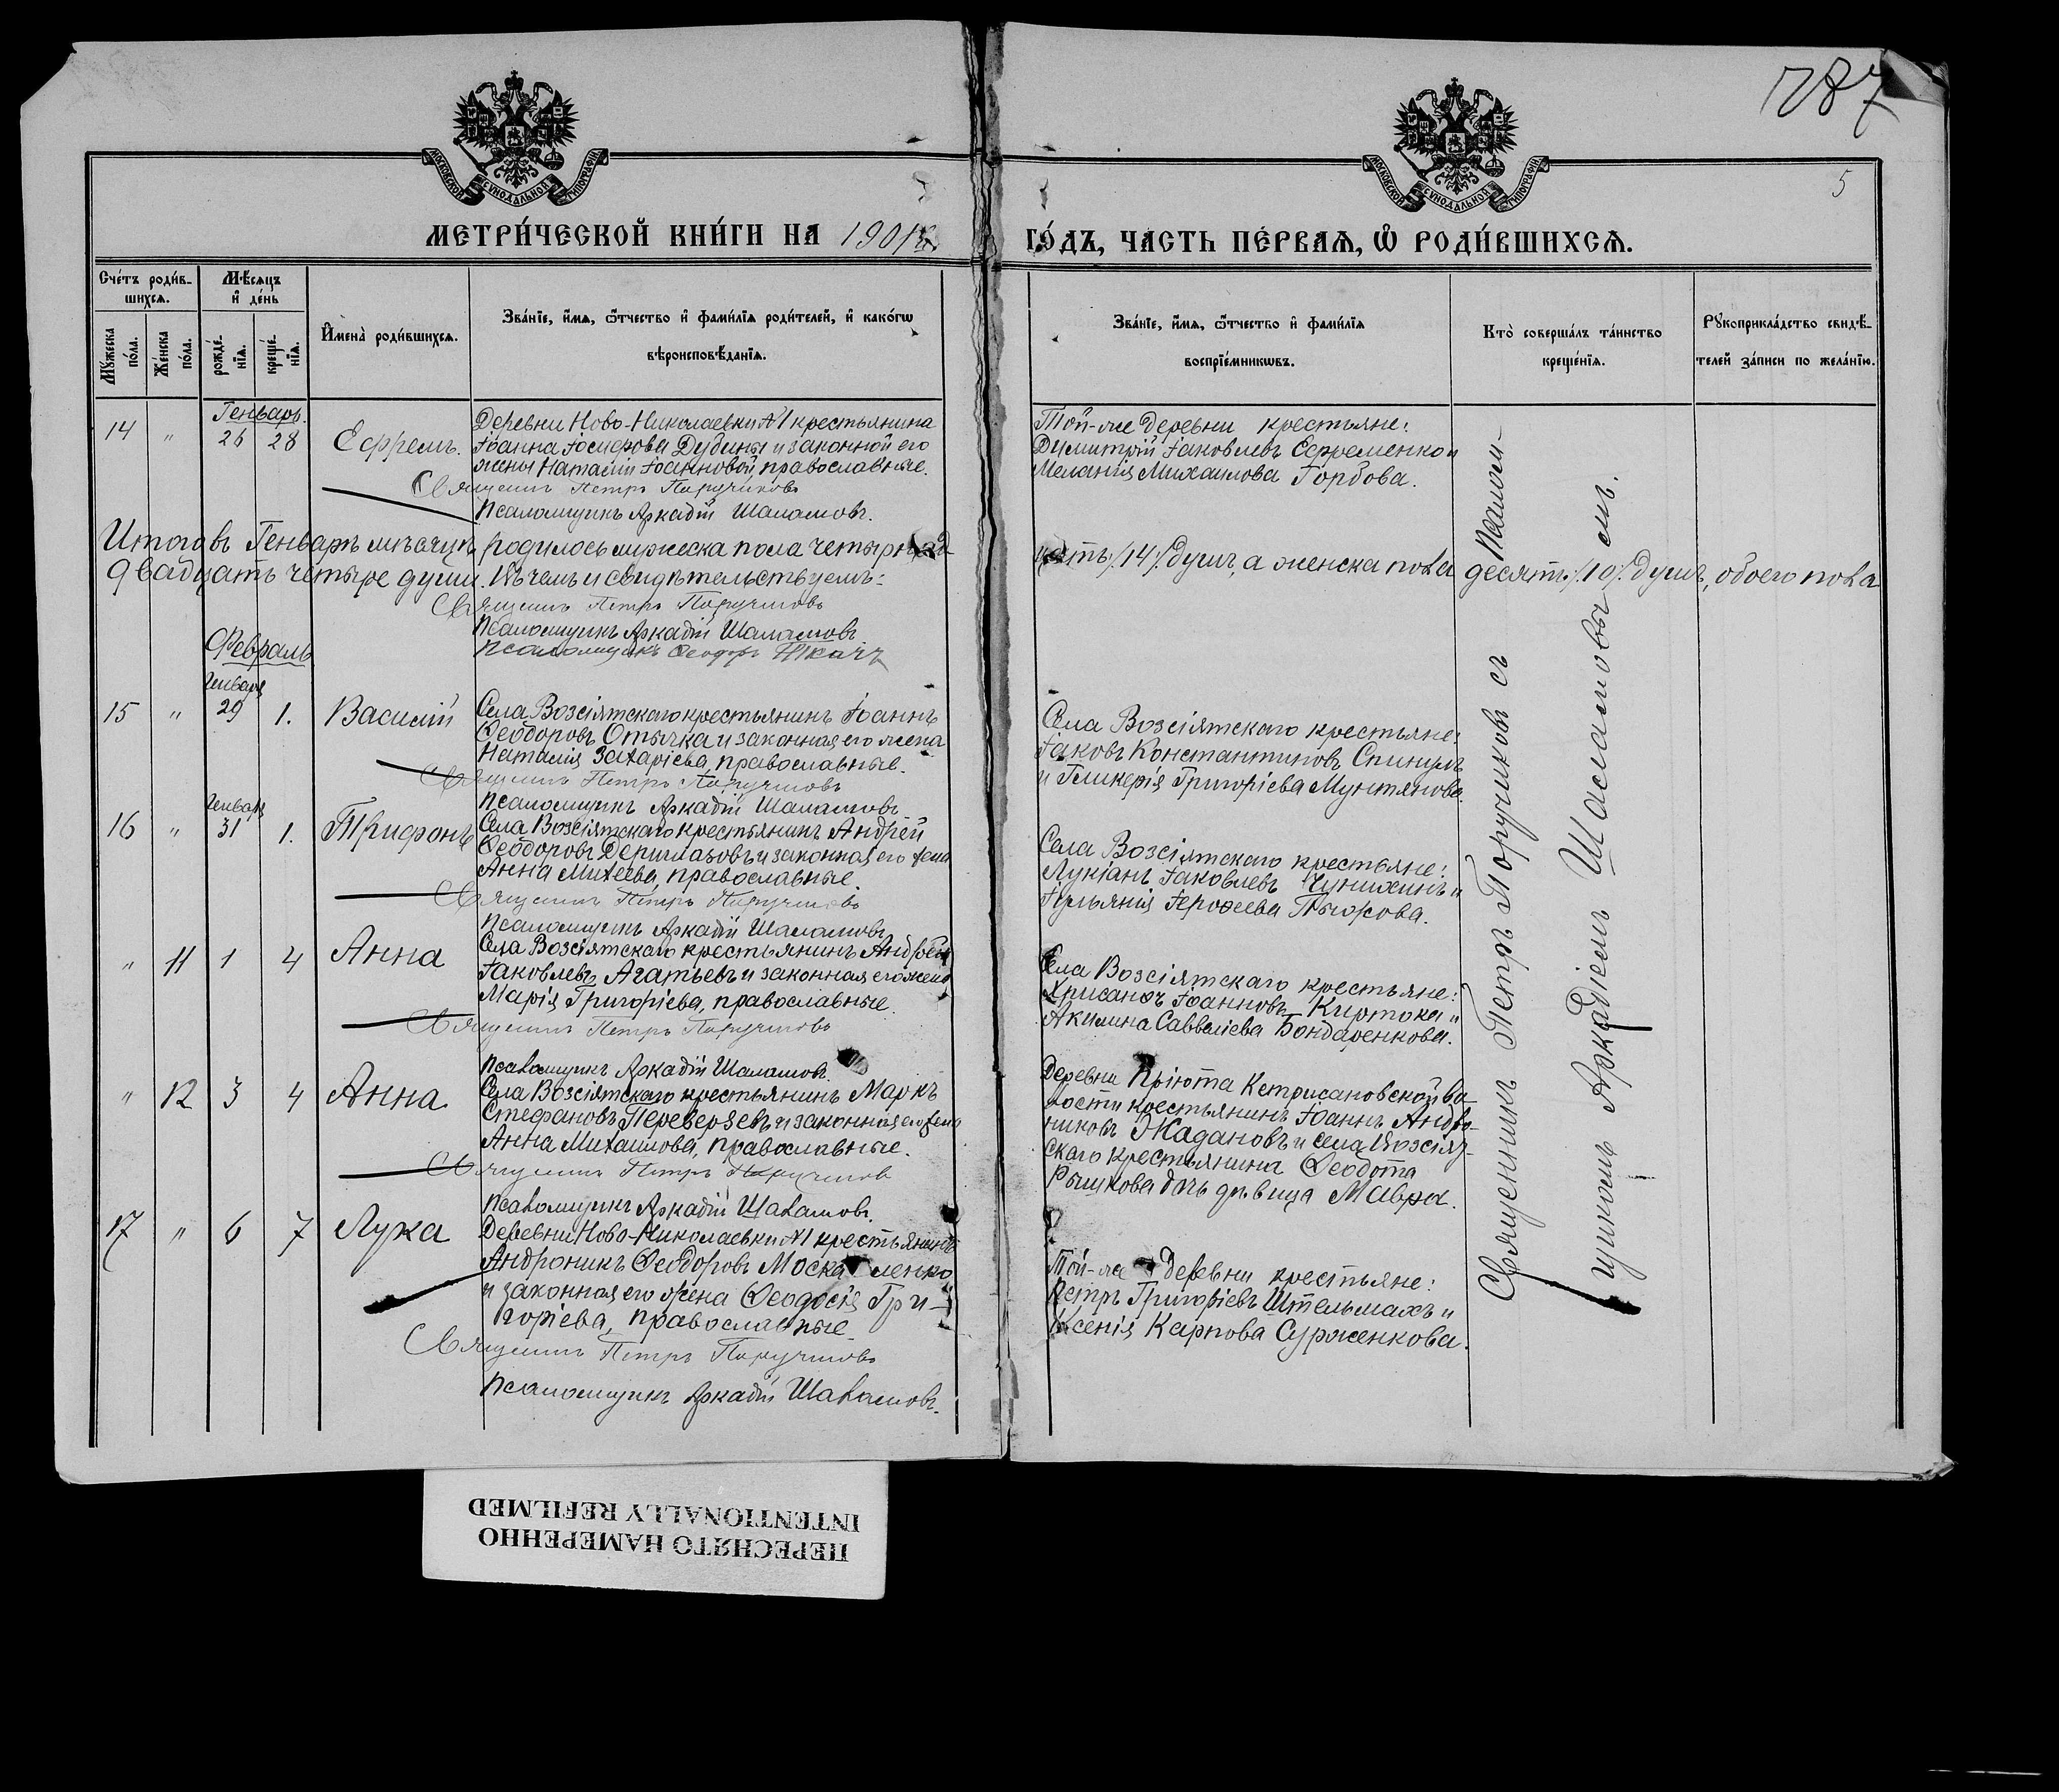 787
5
МОСКОВСКОЙ СѴНОДАЛЬНОЙ ТИПОГРАФІИ
МОСКОВСКОЙ СѴНОДАЛЬНОЙ ТИПОГРАФІИ
МЕТРИ́ЧЕСКОЙ КНИ́ГИ НА 1901
ГО́ДЪ, ЧА́СТЬ ПЕ́РВАЯ, Ѽ РОДИ́ВШИХСЯ.
Сче́тъ роди́в-
шихся.
Мѣ́сяцъ
и҆ де́нь
Мꙋ́жеска
по́ла.
Же́нска
по́ла.
рожде́-
нїя.
креще́-
нїя.
И҆мена̀ роди́вшихся.
Зва́нїе, и҆́мя, ѻ҆́тчество и҆ фами́лїя роди́телей, и҆ како́гѡ
вѣроисповѣ́данїя.
Зва́нїе, и҆́мя, ѻ҆́тчество и҆ фами́лїя
воспрїе́мникѡвъ.
Кто̀ соверша́лъ та́инство
креще́нїя.
Рꙋкоприкла́дство свидѣ́-
телей за́писи по жела́нїю.
Генварь.
14 " 26 28 Ефремъ.
Деревни Ново-Николаевки №1 крестьянина
Іоанна Іосифова Дубины и законной его
жены Наталіи Іоанновой, православные.
Священникъ Петръ Поручиковъ
Псаломщикъ Аркадій Шаламовъ.
Той-же деревни крестьяне:
Димитрій Іаковлевъ Ефременко и
Меланія Михаилова Горбова.
Итого въ Генварѣ мѣсяцѣ родилось мужеска пола четырнад-
цать /14/ душъ, а женска пола десять /10/ душъ, обоего пола
двадцать четыре души. Въ чемъ и свидѣтельствуемъ:
Священникъ Петръ Поручиковъ
Псаломщикъ Аркадій Шаламовъ.
Псаломщикъ Ѳеодоръ Ткачъ
Февраль
Генваря
15 " 29 1. Василій
Села Возсіятскаго крестьянинъ Іоаннъ
Ѳеодоровъ Отычка и законная его жена
Наталія Захаріева, православные.
Священникъ Петръ Поручиковъ
Псаломщикъ Аркадій Шаламовъ.
Села Возсіятскаго крестьяне:
Іаковъ Константиновъ Спинулъ
и Гликерія Григоріева Мунтянова.
Генваря
16 " 31 1. Трифонъ
Села Возсіятскаго крестьянинъ Андрей
Ѳеодоровъ Дериглазовъ и законная его жена
Анна Михеева, православные.
Священникъ Петръ Поручиковъ
Псаломщикъ Аркадій Шаламовъ.
Села Возсіятскаго крестьяне:
Лукіанъ Іаковлевъ Чунихинъ и
Іуліанія Іероѳеева Пыжова.
" 11 1 4 Анна
Села Возсіятскаго крестьянинъ Андрей
Іаковлевъ Агатьевъ и законная его жена
Марія Григоріева, православные.
Священникъ Петръ Поручиковъ
Псаломщикъ Аркадій Шаламовъ.
Села Возсіятскаго крестьяне:
Хрисанѳъ Іоанновъ Киртока и
Акилина Савваліева Бондаренкова.
" 12 3 4 Анна
Села Возсіятскаго крестьянинъ Маркъ
Стефановъ Переверзевъ и законная его жена
Анна Михаилова, православные.
Священникъ Петръ Поручиковъ
Псаломщикъ Аркадій Шаламовъ.
Деревни Пріюта Кетрисановской во-
лости крестьянинъ Іоаннъ Андро-
никовъ Жадановъ и села Возсіят-
скаго крестьянина Ѳеодота
Рышкова дочь дѣвица Мавра.
17 " 6 7 Лука
Деревни Ново-Николаевки №1 крестьянинъ
Андроникъ Ѳеодоровъ Москаленко
и законная его жена Ѳеодосія Гри-
горіева, православные.
Священникъ Петръ Поручиковъ
Псаломщикъ Аркадій Шаламовъ.
Той-же деревни крестьяне:
Петръ Григоріевъ Штельмахъ и
Ксенія Карпова Сурженкова.
Священникъ Петръ Поручиковъ съ Псалом-
щикомъ Аркадіемъ Шаламовымъ.
ПЕРЕСНЯТО НАМЕРЕННО
INTENTIONALLY REFILMED